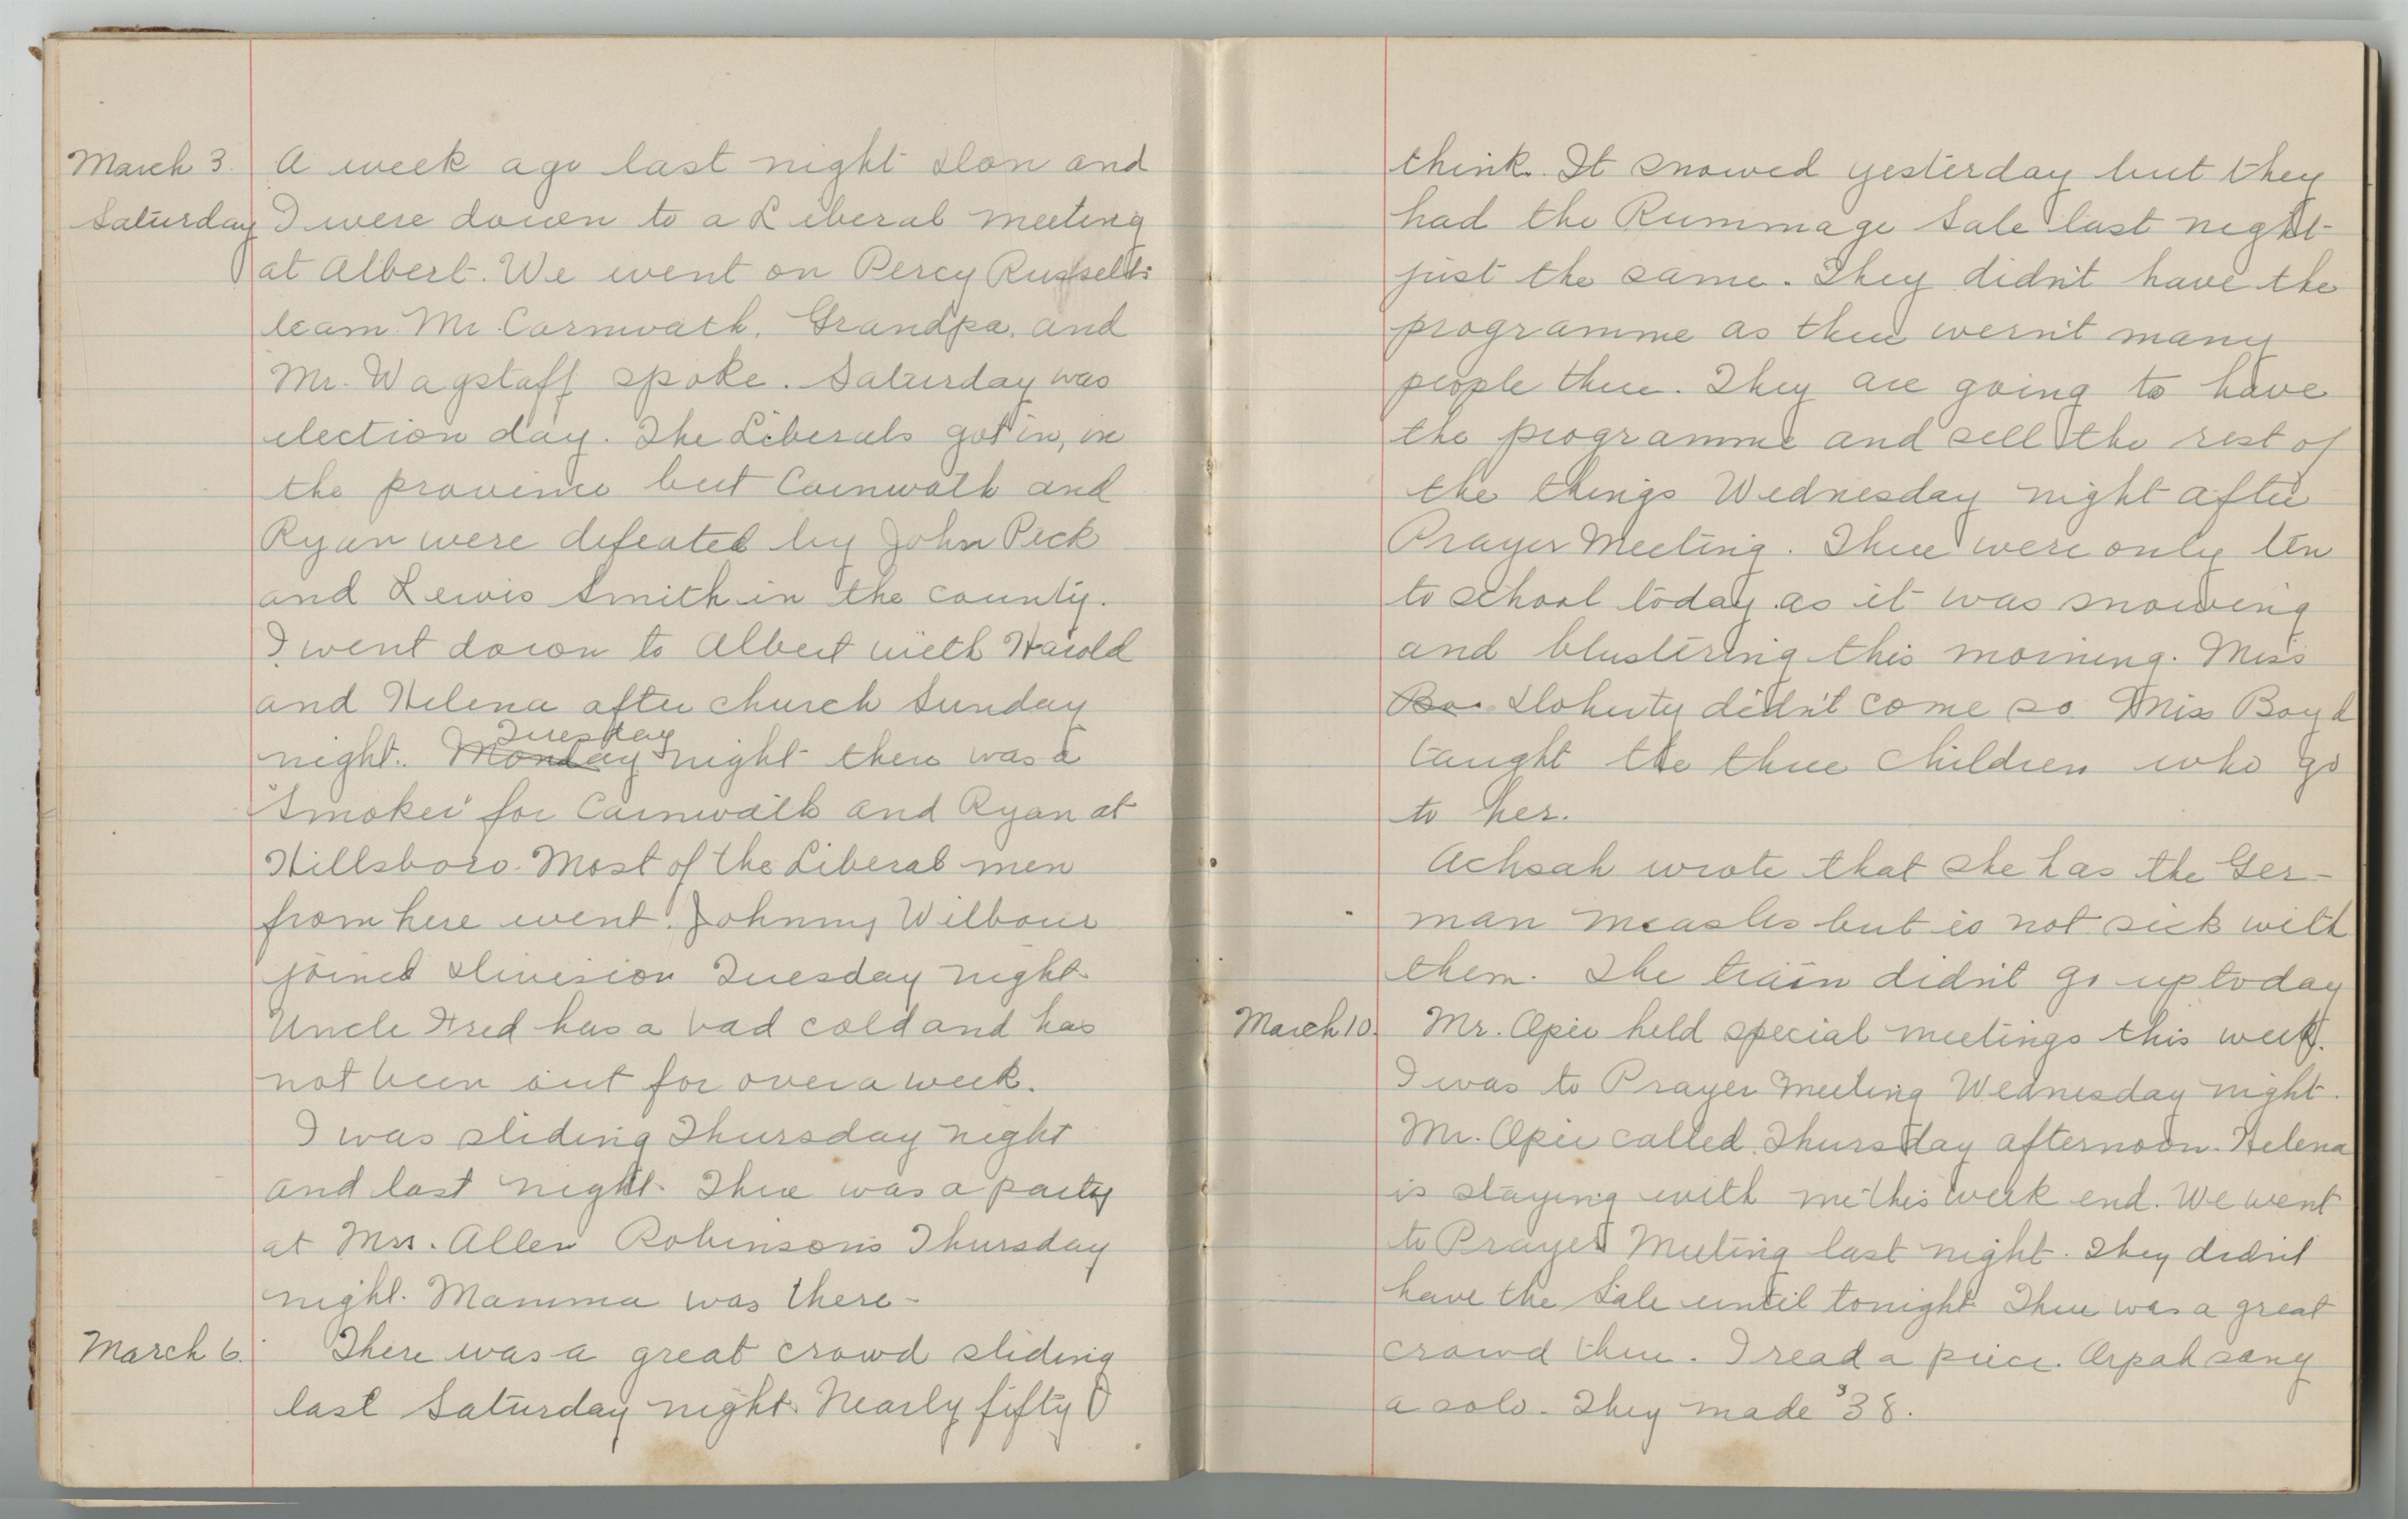 March 3. A week ago last night Don and
Saturday I were down to a Liberal meeting
at Albert. We went on Percy Russell's
team Mr. Carnwath, Grandpa, and
Mr. Wagstaff spoke. Saturday was
election day. The Liberals got in, in
the province but Carnwath and
Ryan were defeated by John Peck
and Lewis Smith in the county.
I went down to Albert with Harold
and Helena after church Sunday
Tuesday
night. Monday night there was a
"Smoker" for Carnwath and Ryan at
Hillsboro. Most of the Liberal men
from here went. Johnny Wilbour
joined Division Tuesday night.
Uncle Fred has a bad cold and has
not been out for over a week.
I was sliding Thursday night
and last night. There was a party
at Mrs. Allen Robinson's Thursday
night. Mamma was there.
March 6. There was a great crowd sliding
last Saturday night. Nearly fifty I
think. It snowed yesterday but they
had the Rummage Sale last night
just the same. They didn't have the
programme as there wern't many
people there. They are going to have
the programme and sell the rest of
the things Wednesday night after
Prayer Meeting. There were only ten
to school today as it was snowing
and blustering this morning. Miss
Bo Doherty didn't come so Miss Boyd
taught the three children who go
to her.
Achsah wrote that she has the Ger-
man measles but is not sick with
them. The train didn't go up today
March 10. Mr. Opie held special meetings this week.
I was to Prayer Meeting Wednesday night.
Mr. Opie called Thursday afternoon. Helena
is staying with me this week end. We went
to Prayer Meeting last night. They didn't
have the Sale until tonight. There was a great
crowd there. I read a piece. Orpah sang
a solo. They made $38.